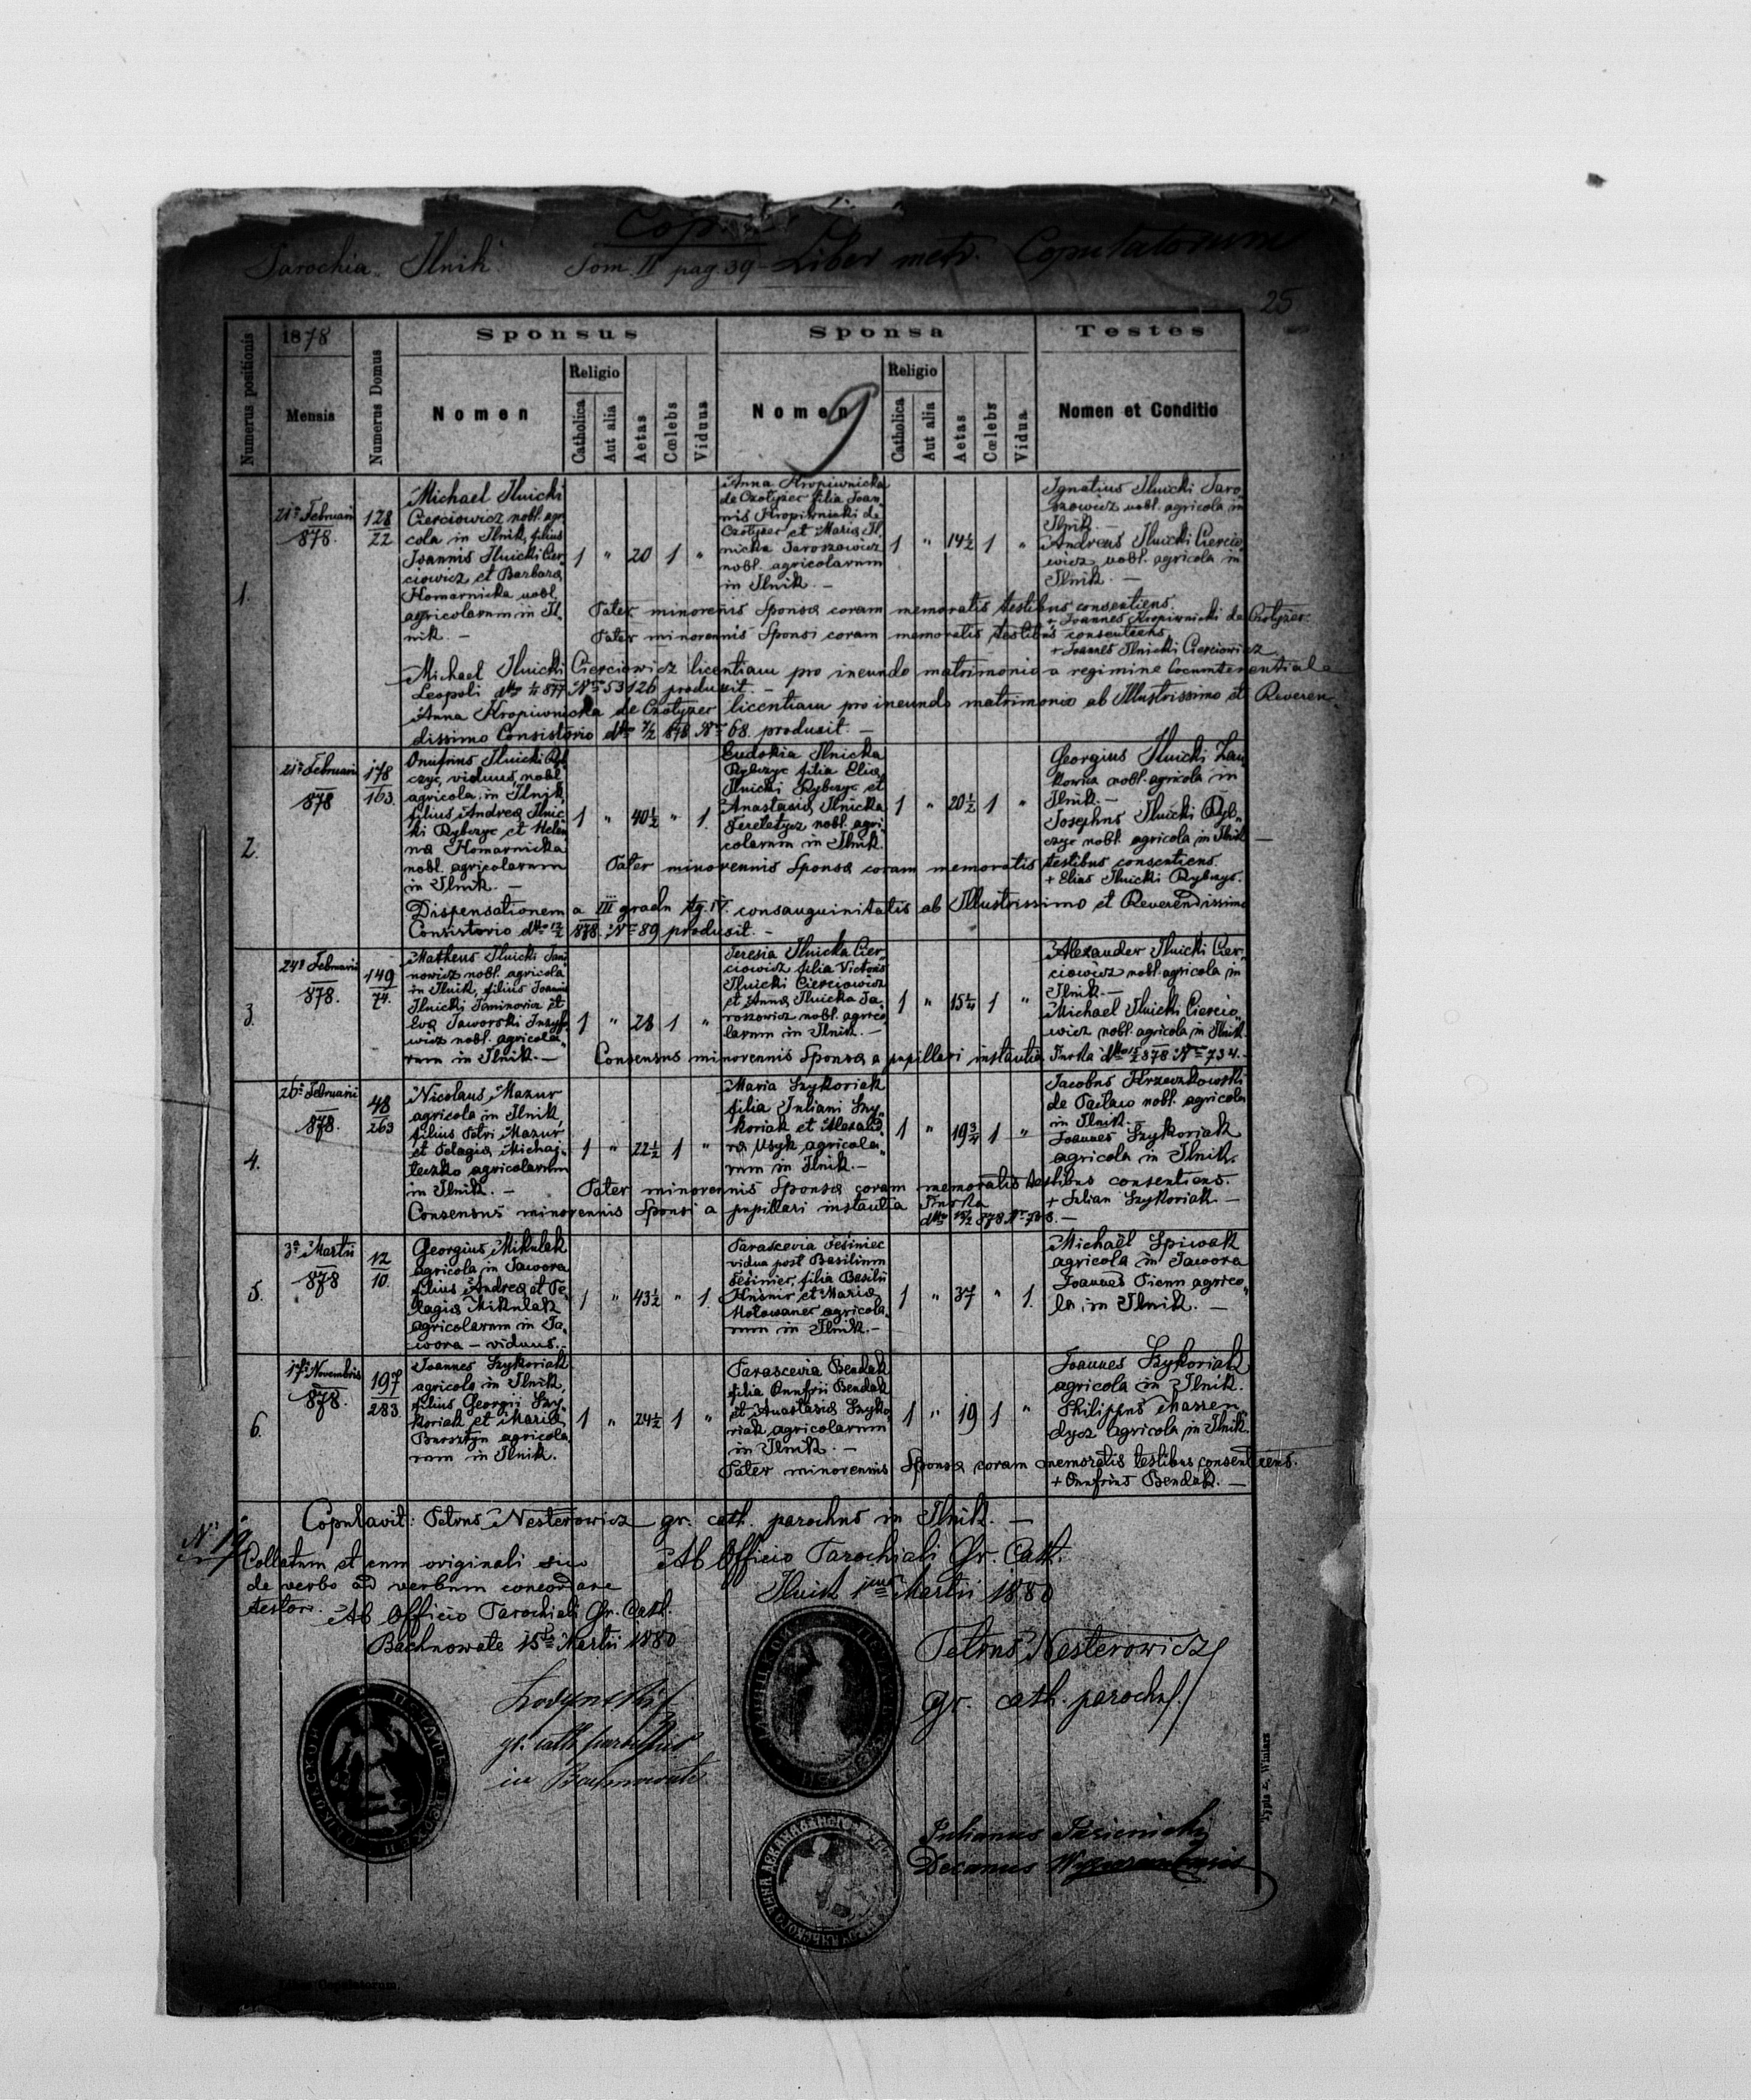 Copia
Parochia Ilnik Tom. II pag. 39 - Liber metr. Copulatorum
25
Numerus positionis
1878
Mensis
Numerus Domus
Sponsus
Nomen
Religio
Catholica
Aut alia
Aetas
Cœlebs
Viduus
Sponsa
Nomen
9
Religio
Catholica
Aut alia
Aetas
Cœlebs
Vidua
Testes
Nomen et Conditio
1.
21a Februarii
878.
128
22
Michael Ilnicki
Cierciowicz nobl. agri
cola in Ilnik, filius
Joannis Ilnicki Cier
ciowicz et Barbara
Homarnicka nobl.
agricolarum in Il
nik. –
1 " 20 1 "
Anna Kropiwnicka
de Czołyzer filia Joan
nis Kropiwnicki de
Czołyzer et Maria Il
nicka Jaroszowicz
nobl. agricolarum
in Ilnik. –
1 " 14½ 1 "
Ignatius Ilnicki Jaro
szowicz nobl. agricola in
Ilnik. –
Andreas Ilnicki Ciercio
wicz nobl. agricola in
Ilnik. –
Pater minorenis Sponsa coram memoratis testibus consentiens.
+ Joannes Kropiwnicki de Czołyzer.
Pater minorennis Sponsi coram memoratis testibus consentiens
+ Joannes Ilnicki Cierciowicz
Michael Ilnicki Cierciowicz licentiam pro ineundo matrimonio a regimine Locumtenentiale
Leopoli dtto 877 Nro 53126 produxit. –
Anna Kropiwnicka de Czołyzer licentiam pro ineundo matrimonio ab Illustrissimo et Reveren
dissimo Consistorio dtto 7/2 878 Nro 68. produxit. –
2.
21a Februarii
878
178
163.
Onufrius Ilnicki Ryb
czyc, viduus, nobl.
agricola in Ilnik,
filius Andrea Ilnic
ki Rybczyc et Hele
na Homarnicka
nobl. agricolarum
in Ilnik. –
1 " 40½ " 1.
Eudokia Ilnicka
Rybczyc filia Elia
Ilnicki Rybczyc et
Anastasia Ilnicka
Tereletycz nobl. agri
colarum in Ilnik.
1 " 20½ 1 "
Georgius Ilnicki
kowicz nobl. agricola in
Ilnik. –
Josephus Ilnicki Ryb
czyc nobl. agricola in Ilnik –
Pater minorennis Sponsa coram memoratis testibus consentiens.
+ Elias Ilnicki Rybczyc.
Dispensationem a III gradu tg. IV. consanguinitatis ab Illustrissimo et Reverendissimo
Consistorio dtto 12/2 878. Nro 89 produxit. –
3.
24a Februarii
878.
149
74.
Matheus Ilnicki Jam
nowicz nobl. agricola
in Ilnik, filius Joannis
Ilnicki Jaminowicz et
Eva Jaworski
wicz nobl. agricola
rum in Ilnik. –
1 " 28 1 "
Teresia Ilnicka Cier
ciowicz filia Victoris
Ilnicki Cierciowicz
et Anna Ilnicka Ja
roszowicz nobl. agrico
larum in Ilnik. –
1 " 15¼ 1 "
Alexander Ilnicki Cier
ciowicz nobl. agricola in
Ilnik. –
Michael Ilnicki Ciercio
wicz nobl. agricola in Ilnik.
Consensus minorennis Sponsa a pupillari instantia Turka dtto 15/2 878 Nro 734. –
4.
26a Februarii
878.
48
263
Nicolaus Mazur
agricola in Ilnik
filius Petri Mazur
et Pelagia Michaj
leczko agricolarum
in Ilnik. –
1 " 22½ 1 "
Maria Szykoriak
filia Juliani Szy
koriak et Alexand
ra Usyk agricola
rum in Ilnik. –
1 " 19¾ 1 "
Jacobus Krzeczkowski
de nobl. agricola
in Ilnik. –
Joannes Szykoriak
agricola in Ilnik.
Pater minorennis Sponsa coram memoratis testibus consentiens.
+ Julian Szykoriak. –
Consensus minorennis Sponsi a pupillari instantia Turka
dtto 15/2 878 Nro. –
5.
3a Martii
878
12
10.
Georgius Mikulak
agricola in Jawora
filius Andrea et Pe
lagia Mikulak
agricolarum in Ja
wora – viduus. –
1 " 43½ " 1.
Parascevia Fesiniec
vidua post Basilium
Fesiniec, filia Basilii
Kusnir et Maria
Hołowanec agricola
rum in Ilnik. –
1 " 37 " 1.
Michaël Spiwak
agricola in Jawora
Joannes Pienn agrico
la in Ilnik. –
6.
17a Novembris
878.
197
283
Joannes Szykoriak
agricola in Ilnik,
filius Georgii Szy
koriak et Maria
Bursztyn agricola
rum in Ilnik.
1 " 24½ 1 "
Parascevia Bendak
filia Onufrii Bendak
et Anastasia Szyko
riak agricolarum
in Ilnik. –
1 " 19 1 "
Joannes Szykoriak
agricola in Ilnik.
Philippus Marren
dycz agricola in Ilnik.
Pater minorennis Sponsa coram memoratis testibus consentiens.
+ Onufrius Bendak. –
Copulavit: Petrus Nesterowicz gr. cath. parochus in Ilnik. –
Collatum et cum originali suo
de verbo ad verbum concordare
testor. Ab Officio Parochiali Gr. Cath.
Bachnowate 15ta Martii 1880
Ab Officio Parochiali Gr. Cath.
Ilnik 1ma Martii 1880
Petrus Nesterowicz
gr. cath. paroch.
gr. cath. parochus
in Bachnowate
Julianus
Decanus
Typis E. Winiarz
Liber Copulatorum.